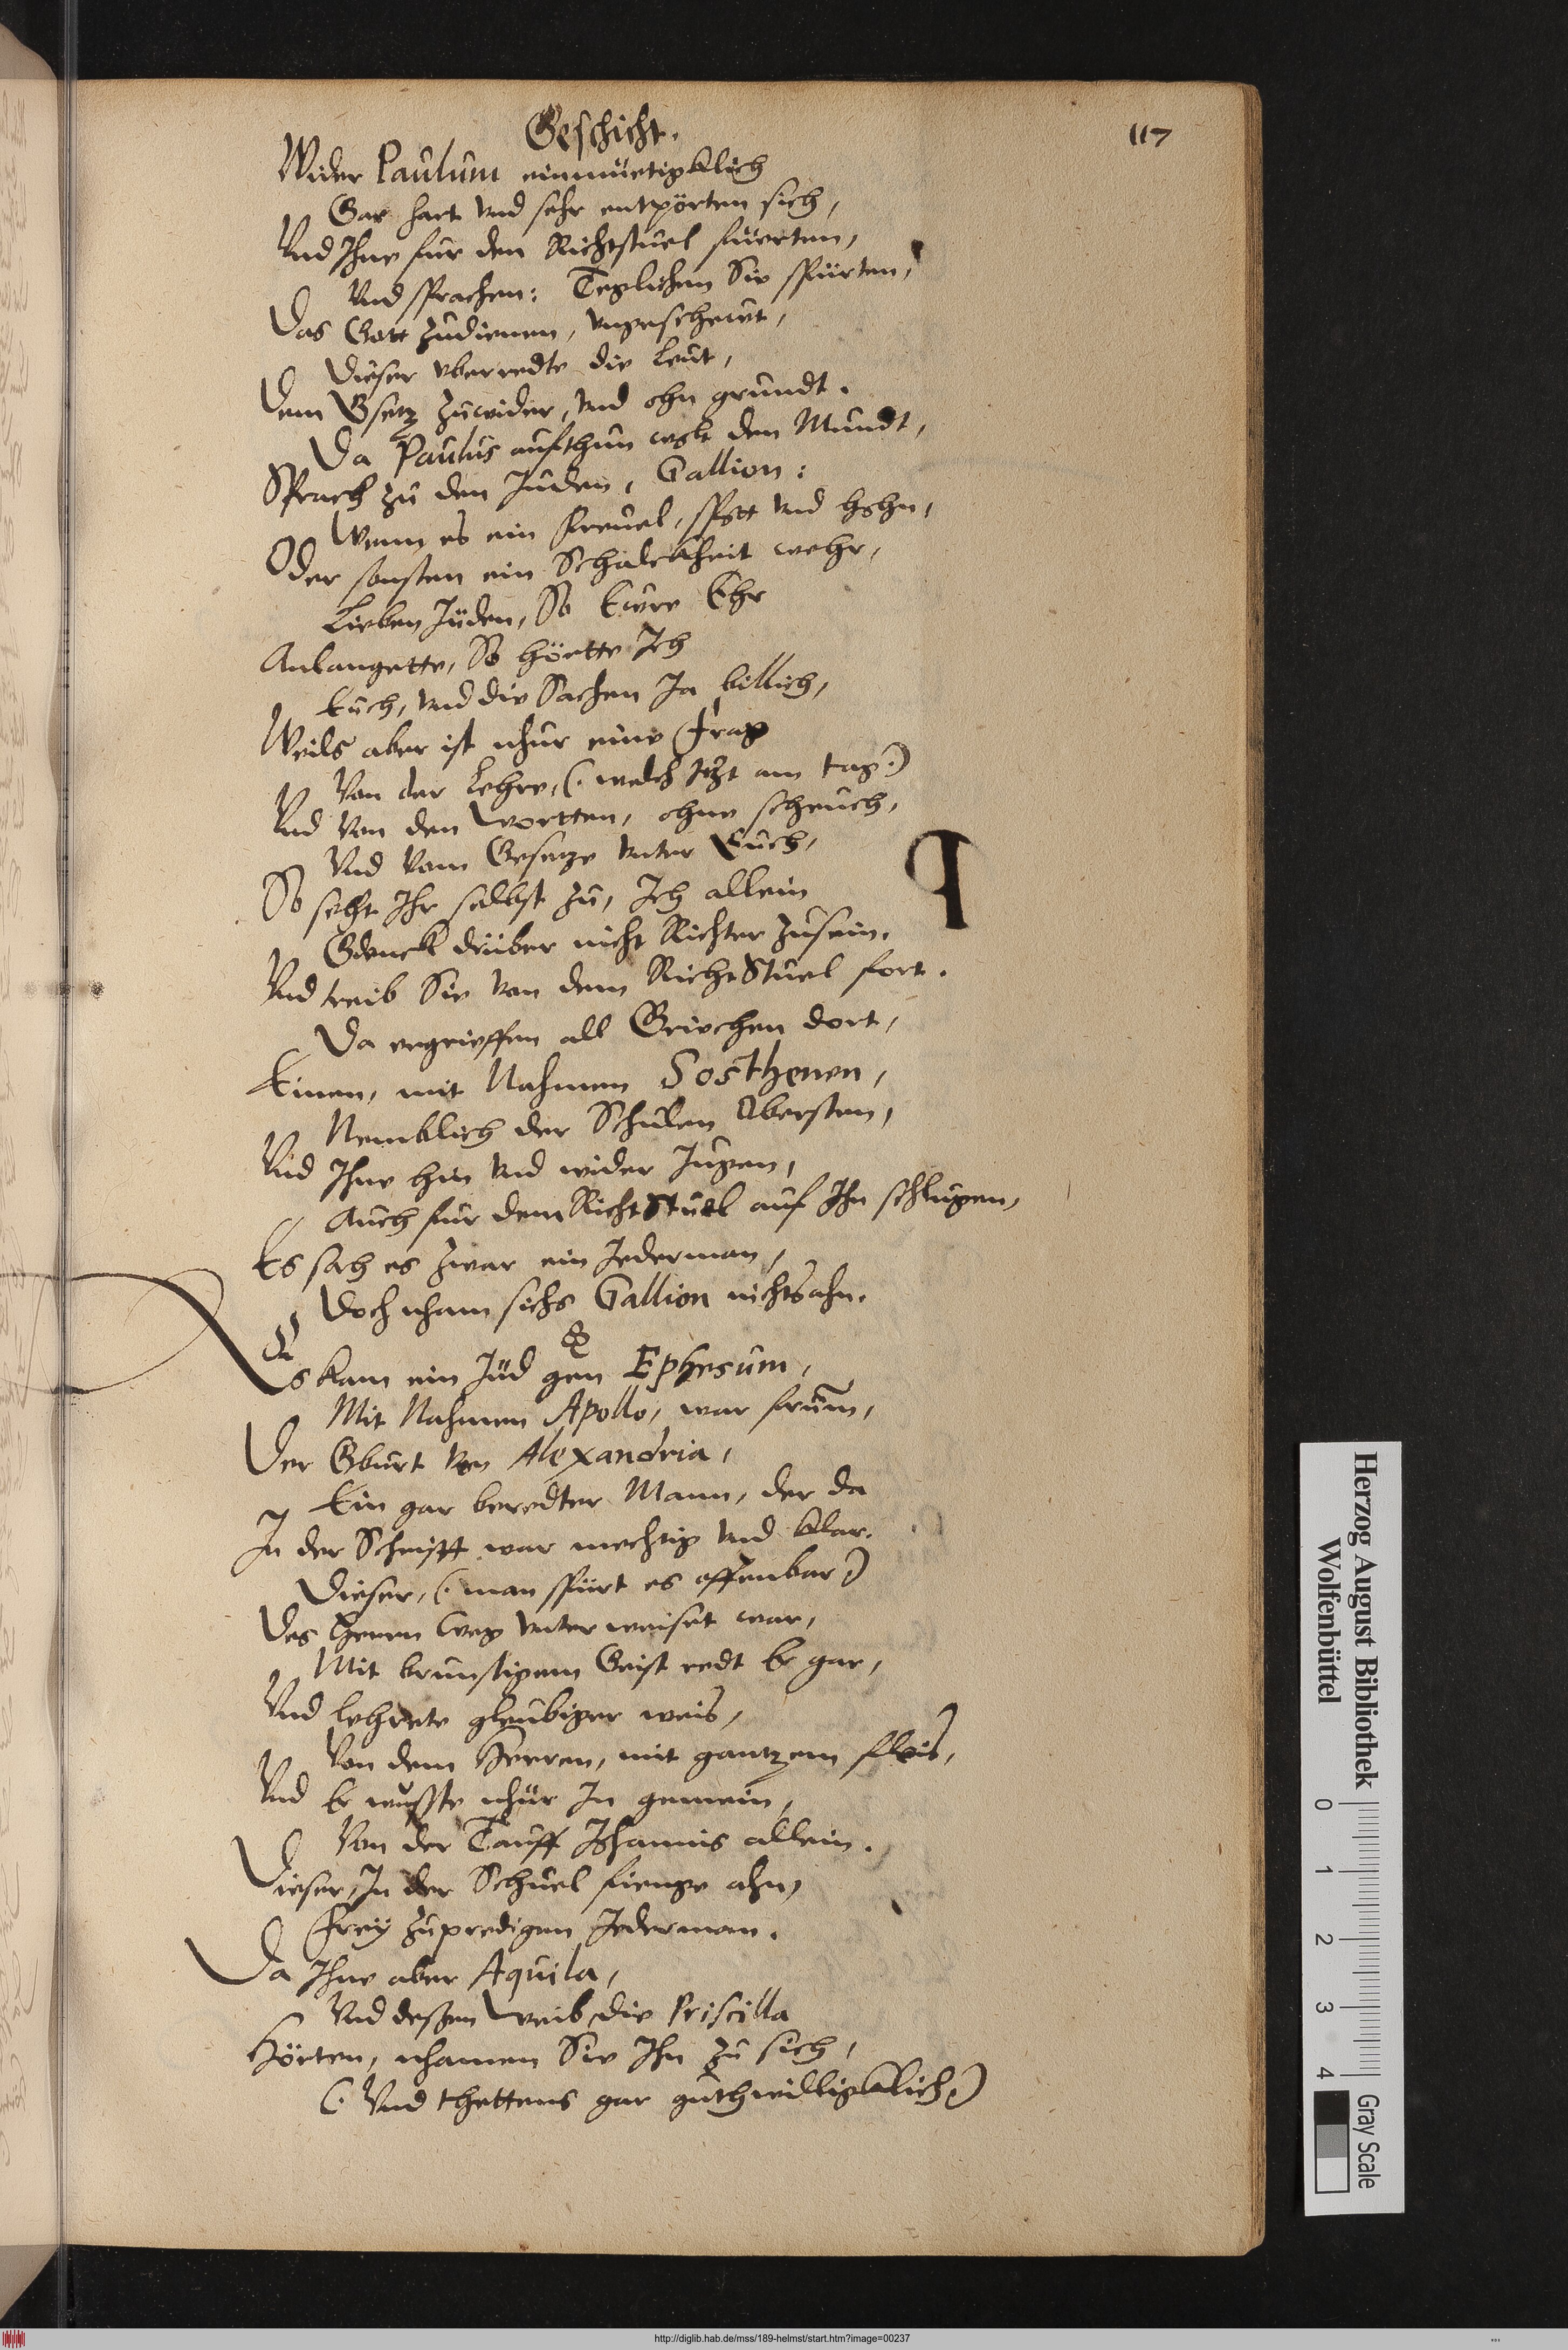 Geschicht.
117
Wider Paulum einmüetigklich
Gar hart Vnd sehr entpörten sich,
Vnd Ihne fur den Richtstuel füerten,
Vnd sprachen: Teglichen Sie spürten,
Das Gott zudienen, vngescheut,
Dieser vberredte die Leut,
Dem Gsetz zuwider, Vnd ohn grundt.
Da Paulus aufthun wolt den Mundt,
Sprach zu den Juden, Gallion:
Wenn es ein freuel, spott Vnd hohn,
Oder sonsten ein Schalckheit wehr,
Lieben Jüden, So Ewre Ehr
Anlangette, So hörtte Ich
Euch, Vnd die Sachen Ja billich,
Weils aber ist nhur eine Frag
Von der Lehre, (. welch Itzt am tag.)
Vnd Von den wortten, ohne scheuch,
Vnd Vom Gesetze Vnter Euch,
So seht Ihr selbst zu, Ich allein
Gdenck drüber nicht Richter zusein.
Vnd treib Sie Von dem RichtStuel fort.
Da ergrieffen all Griechen dort,
Einen, mit Nahmen Sosthenen,
Nemblich der Schulen Obersten,
Vnd Ihne hin Vnd wider Zugen,
Auch fur dem RichtStuel auf Ihn schlugen,
Es sah es zwar ein Jederman,
Doch nham sichs Gallion nichts ahn.
Es kam ein Jüd gen Ephesum,
Mit Nahmen Apollo, war frum,
Der Gburt Von Alexandria,
Ein gar beredter Mann, der da
In der Schrifft war mechtig Vnd klar.
Dieser, (. man spürt es offenbar)
Des Herrn Weg Vnterweiset war,
Mit brunstigem Geist redt Er gar,
Vnd lehrete gleubiger weis,
Von dem Herren, mit gantzem fleis,
Vnd Er wusste nhur In gemein,
Von der Tauff Johannis allein.
Dieser, In der Schuel fienge ahn,
Frey zupredigen Jederman.
Da Ihne aber Aquila,
Vnd deßen Weib, die Priscilla
Hörten, nhamen Sie Ihn zu sich,
(. Vnd thettens gar guthwilligklich.)
Herzog August Bibliothek
Wolfenbüttel
0 1 2 3 4
Gray Scale
http://diglib.hab.de/mss/189-helmst/start.htm?image=00237